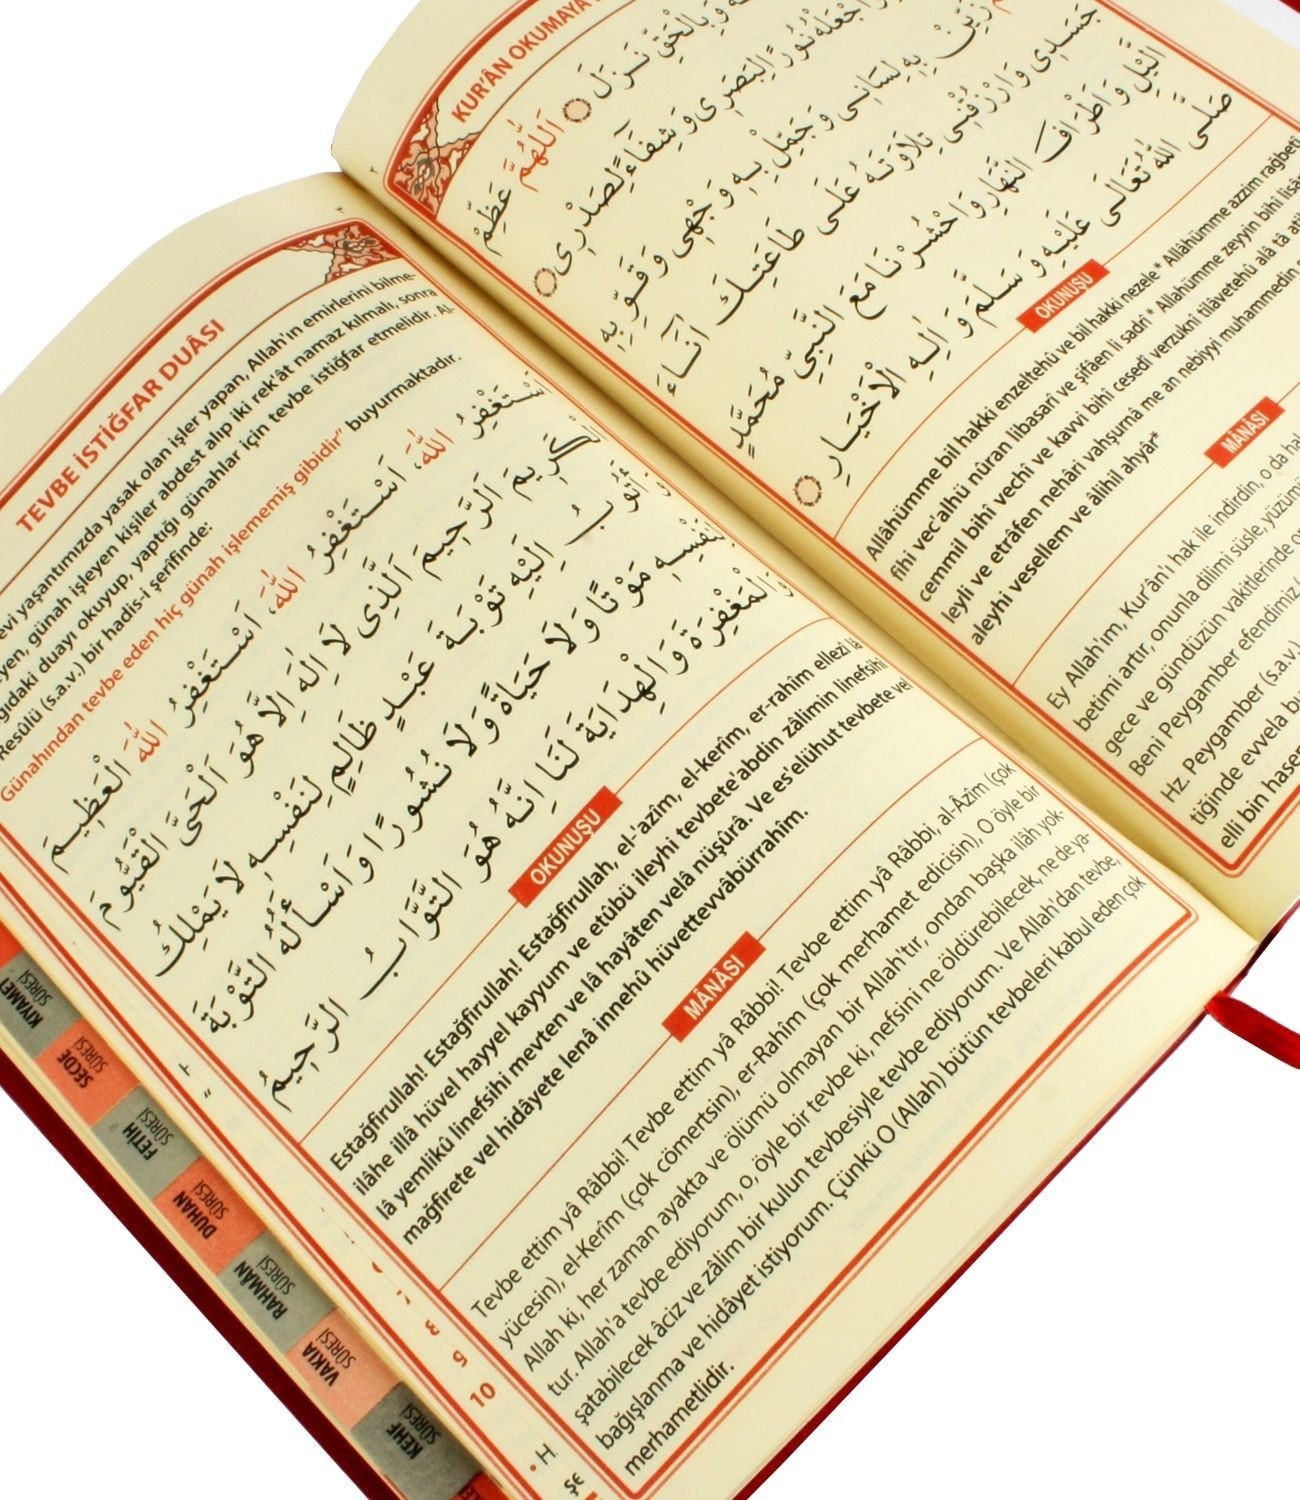 TEVBE İSTİĞFAR DUÂSI
evi yaşantımızda yasak olan işler yapan, Allah'ın emirlerini bilme-
yen, günah işleyen kişiler abdest alıp iki rek'ât namaz kılmalı, sonra
daki duayı okuyup, yaptığı günahlar için tevbe istiğfar etmelidir. Al-
Resûlü (s.a.v.) bir hadis-i şerifinde:
Günahından tevbe eden hiç günah işlememiş gibidir" buyurmaktadır.
اَسْتَغْفِرُ اللهَ، اَسْتَغْفِرُ اللهَ، اَسْتَغْفِرُ اللهَ الْعَظِيمَ
الْكَرِيمَ الرَّحِيمَ الَّذِى لَا اِلٰهَ اِلَّا هُوَ الْحَىَّ الْقَيُّومَ
اَتُوبُ اِلَيْهِ تَوْبَةَ عَبْدٍ ظَالِمٍ لِنَفْسِهِ لَا يَمْلِكُ
لِنَفْسِهِ مَوْتًا وَلَا حَيَاةً وَلَا نُشُورًا وَاَسْأَلُهُ التَّوْبَةَ
وَالْمَغْفِرَةَ وَالْهِدَايَةَ لَنَا اِنَّهُ هُوَ التَّوَّابُ الرَّحِيمُ
OKUNUŞU
Estağfirullah! Estağfirullah! Estağfirullah, el-'azîm, el-kerîm, er-rahîm ellezî lâ
ilâhe illâ hüvel hayyel kayyum ve etûbü ileyhi tevbete'abdin zâlimin linefsihî
lâ yemlikû linefsihi mevten ve lâ hayâten velâ nüşûrâ. Ve es'elühut tevbete vel
mağfirete vel hidâyete lenâ innehû hüvettevvâbürrahîm.
MÂNÂSI
Tevbe ettim yâ Râbbi! Tevbe ettim yâ Râbbi! Tevbe ettim yâ Râbbi, al-Âzîm (çok
yücesin), el-Kerîm (çok cömertsin), er-Rahîm (çok merhamet edicisin), O öyle bir
Allah ki, her zaman ayakta ve ölümü olmayan bir Allah'tır, ondan başka ilâh yok-
tur. Allah'a tevbe ediyorum, o, öyle bir tevbe ki, nefsini ne öldürebilecek, ne de ya-
şatabilecek âciz ve zâlim bir kulun tevbesiyle tevbe ediyorum. Ve Allah'dan tevbe,
bağışlanma ve hidâyet istiyorum. Çünkü O (Allah) bütün tevbeleri kabul eden çok
merhametlidir.
KUR'ÂN OKUMAYA
وَبِالْحَقِّ نَزَلَ اَللّٰهُمَّ عَظِّمْ
وَاجْعَلْهُ نُورًا لِبَصَرِى وَشِفَاءً لِصَدْرِى
زَيِّنْ بِهِ لِسَانِى وَجَمِّلْ بِهِ وَجْهِى وَقَوِّ بِهِ
جَسَدِى وَارْزُقْنِى تِلَاوَتَهُ عَلَى طَاعَتِكَ اٰنَاءَ
الَّيْلِ وَاَطْرَافَ النَّهَارِ وَاحْشُرْنَا مَعَ النَّبِىِّ مُحَمَّدٍ
صَلَّى اللهُ تَعَالَى عَلَيْهِ وَسَلَّمَ وَاٰلِهِ الْاَخْيَارِ
OKUNUŞU
Allâhümme bil hakki enzeltehü ve bil hakki nezele * Allâhümme azzim rağbetî
fihi vec'alhü nûran libasarî ve şifâen li sadrî * Allahümme zeyyin bihî lisâ
cemmil bihî vechi ve kavvi bihî cesedî verzuknî tilâvetehû alâ tâ
leyli ve etrâfen nehâri vahşurnâ me an nebiyyi muhammedin
aleyhi vesellem ve âlihil ahyâr*
MÂNÂSI
Ey Allah'ım, Kur'ân'ı hak ile indirdin, o da ha
betimi artır, onunla dilimi süsle, yüzümü
gece ve gündüzün vakitlerinde o
Beni Peygamber efendimiz
Hz. Peygamber (s.a.v.)
tiğinde evvela b
elli bin hasen
KIYAMET SÛRESİ
SECDE SÛRESİ
FETİH SÛRESİ
DUHAN SÛRESİ
RAHMÂN SÛRESİ
VAKIA SÛRESİ
KEHF SÛRESİ
10